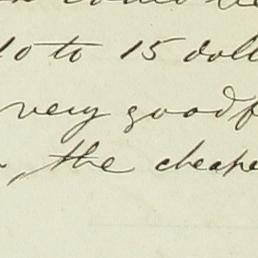 10 to 15 doll
very good f
the cheape